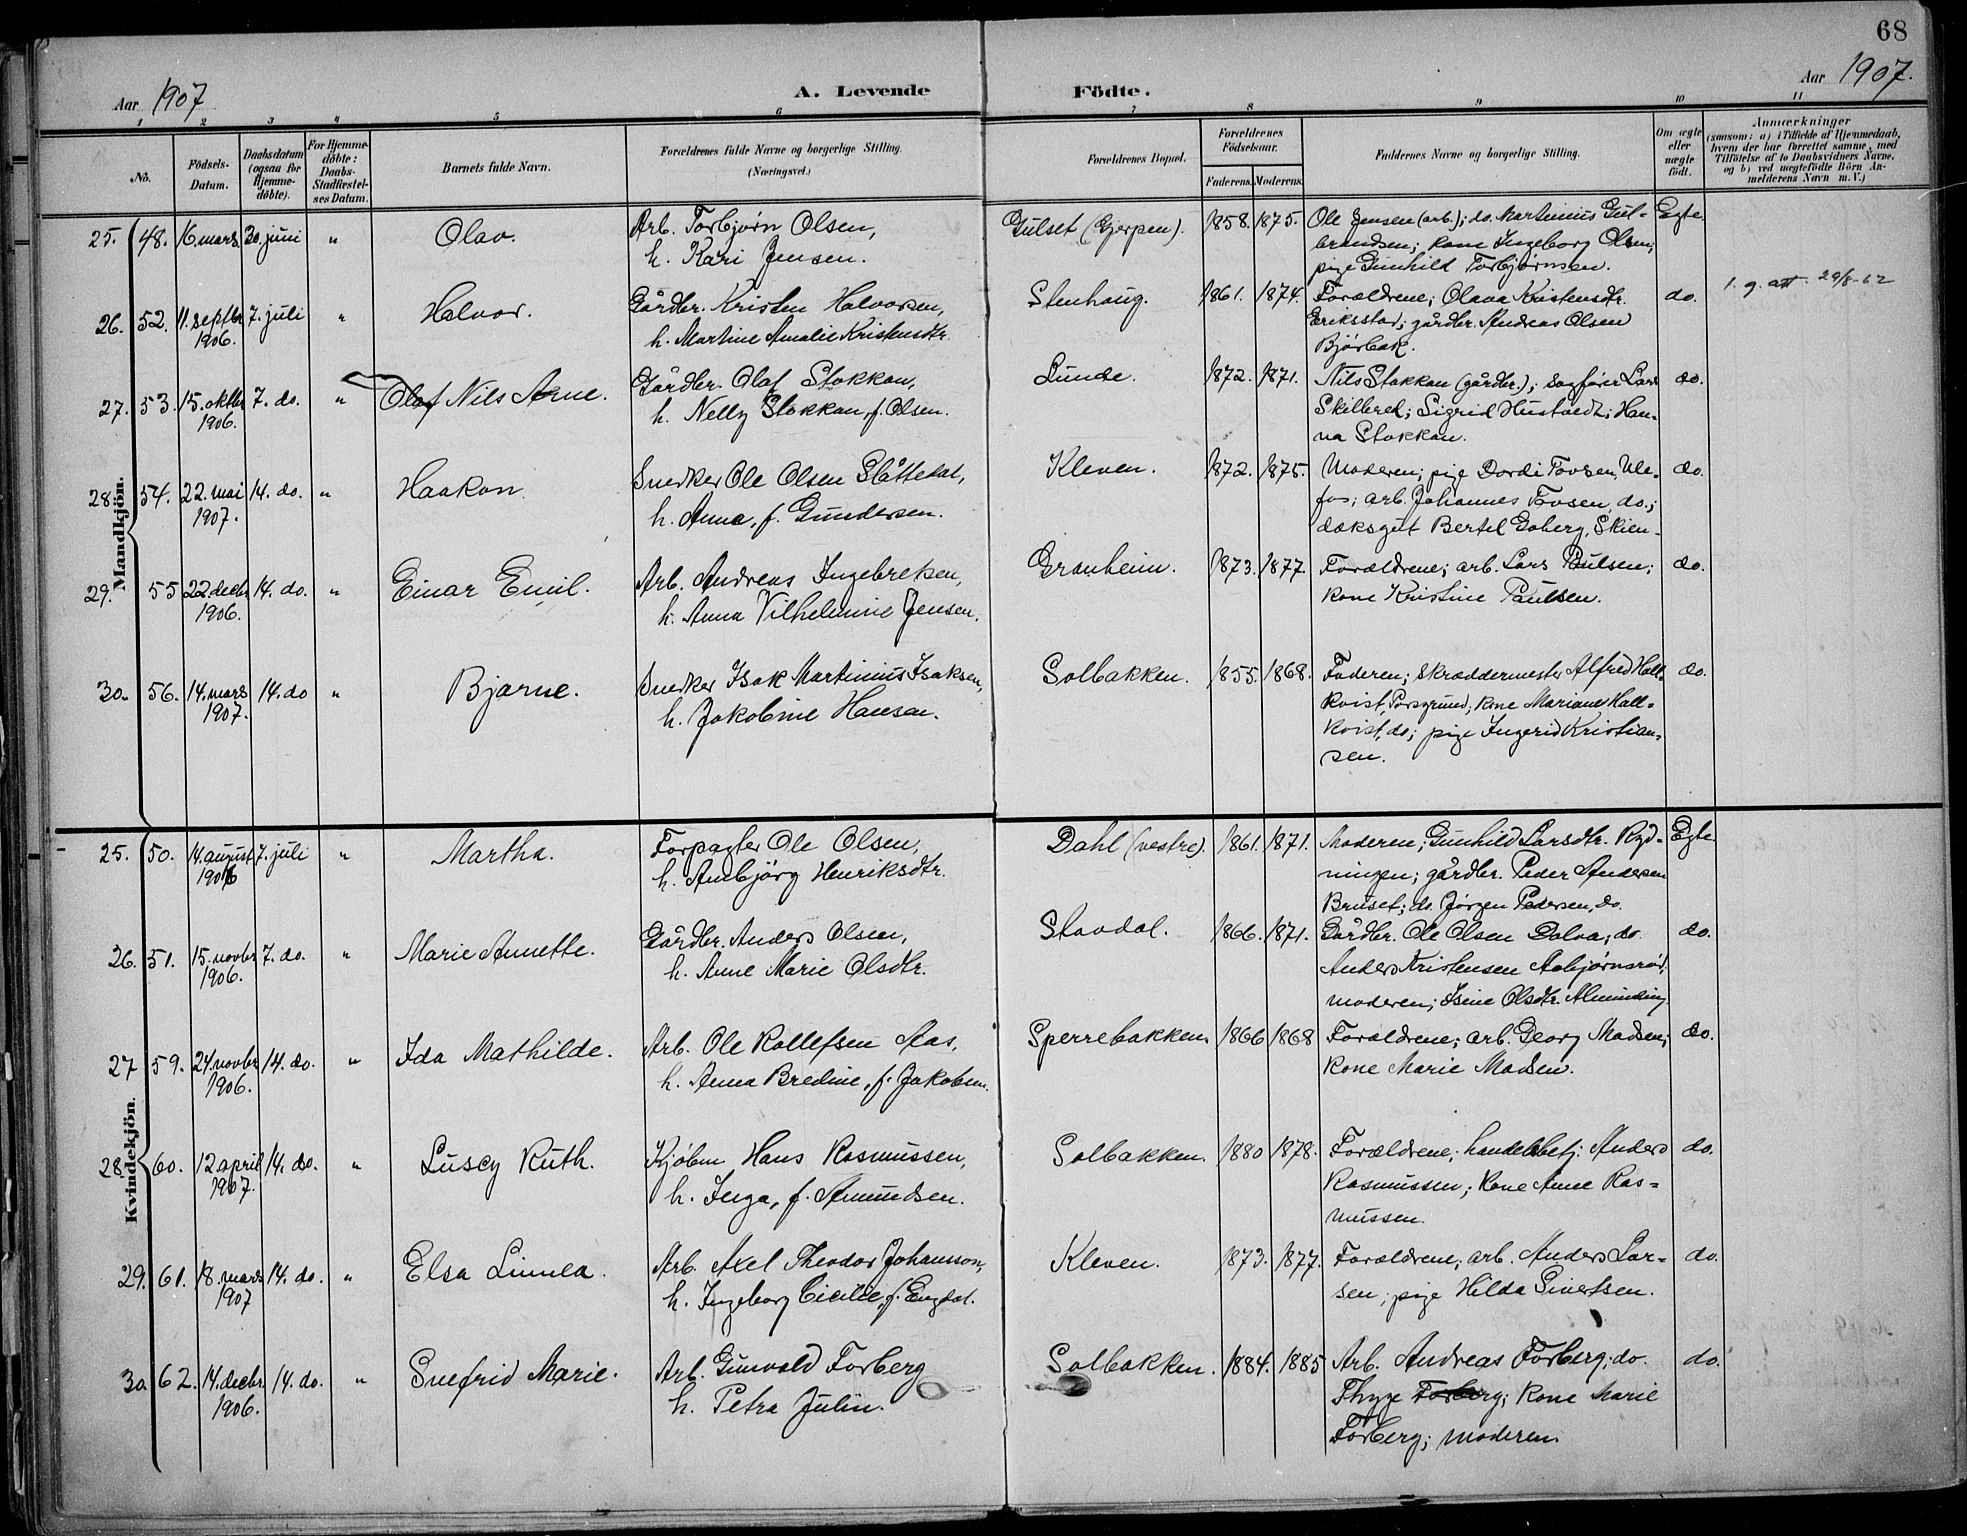 68
Aar 1907
A. Levende Födte.
Aar 1907.
1 2 3 4 5 6 7 8 9 10 11
No.
Födsels-Datum.
Daabsdatum (ogsaa for Hjemme-döbte).
For Hjemme-döbte: Daabs-Stadfæstel-ses Datum.
Barnets fulde Navn.
Forældrenes fulde Navne og borgerlige Stilling.
(Næringsvei.)
Forældrenes Bopæl.
Forældrenes Födselsaar.
Faderens. Moderens.
Faddernes Navne og borgerlige Stilling.
Om ægte eller uægte födt.
Anmærkninger
(saasom: a) i Tilfælde af Hjemmedaab,
hvem der har forrettet samme, med
Tilföielse af to Daabsvidners Navne,
og b) ved uægtefödte Börn An-
melderens Navn m. V.)
Mandkjön.
25. 48. 16. mars 30. juni " Olav. Arb. Torbjørn Olsen, Gulset (Gjerpen). 1858. 1875. Ole Jensen (arb.); do. Martinius Gul- Egte
h. Kari Jensen. brandsen; kone Ingeborg Olsen;
pige Gunhild Torbjørnsen.
26. 52. 11. septbr 7. juli " Halvor. Gårdbr. Kristen Halvorsen, Stenhoug. 1861. 1874. Forældrene; Olava Kristensdtr. do. 1. g. att. 29/8-62
1906. h. Martine Amalie Kristensdtr. Eriksstad; gårdbr. Andreas Olsen
Bjørbæk.
27. 53. 15. oktbr 7. do. " Olaf Nils Arne. Gårdbr. Olaf Stokkan, Lunde. 1872. 1871. Nils Stokkan (gårdbr.); sagfører Lars do.
1906. h. Nelly Stokkan, f. Olsen. Skilbred; Sigrid Hustvedt; Han-
na Stokkan.
28. 54. 22. mai 14. do. " Haakon. Snedker Ole Olsen Slåttedal, Kleven. 1872. 1875. Moderen; pige Dordi Tovsen, Ule- do.
1907. h. Anna, f. Gundersen. fos; arb. Johannes Tovsen, do.;
dæksgut Bertel Goberg, Skien.
29. 55 22. decbr 14. do. " Einar Emil. Arb. Andreas Ingebretsen, Granheim. 1873. 1877. Forældrene; arb. Lars Paulsen; do.
1906. h. Anna Vilhelmine Jensen. kone Kristine Paulsen.
30. 56. 14. mars 14. do " Bjarne. Snedker Isak Martinius Isaksen, Solbakken. 1855. 1868. Faderen; skræddermester Alfred Hall- do.
1907. h. Jakobine Hansen. kvist, Porsgrund; kone Mariane Hall-
kvist, do; pige Ingerid Kristian-
sen.
Kvindekjön.
25. 50. 14. august 7. juli " Martha. Forpagter Ole Olsen, Dahl (vestre). 1861. 1871. Moderen; Gunhild Larsdtr. Ryd- Egte.
1906 h. Anbjörg Henriksdtr. ningen; gårdbr. Peder Andersen
Bruset; do. Jörgen Pedersen, do.
26. 51. 15. novbr 7. do. " Marie Annette. Gårdbr. Anders Olsen, Stavdal. 1866. 1871. Gårdbr. Ole Olsen Dolva; do. do.
1906. h. Anne Marie Olsdtr. Anders Kristensen Asbjørnsrød;
moderen; Isine Olsdtr. Alminding
27 59. 24. novbr 14. do. " Ida Mathilde. Arb. Ole Rollefsen Aas, Sperrebakken 1866 1868 Forældrene; arb. Georg Madsen; do.
1906. h. Anna Bredine, f. Jakobsen. kone Marie Madsen.
28. 60. 12 april 14. do. " Luscy Ruth. Kjøbm Hans Rasmussen, Solbakken. 1880 1878. Forældrene; handelsbetj. Anders do.
1907. h. Inga, f. Amundsen. Rasmussen; kone Anne Ras-
mussen.
29. 61. 18. mars 14. do. " Elsa Linnea. Arb. Axel Theodor Johansson, Kleven. 1873. 1877. Forældrene; arb. Anders Lar- do.
1907 h. Ingeborg Cicilie, f. Engdal. sen; pige Hilda Sivertsen.
30 62. 14. decbr. 14. do. " Snefrid Marie. Arb. Gunvald Forberg Solbakken. 1884. 1885 Arb. Andreas Forberg; do. do.
1906. h. Petra Julin. Thyge Forberg; kone Marie
Forberg; moderen.